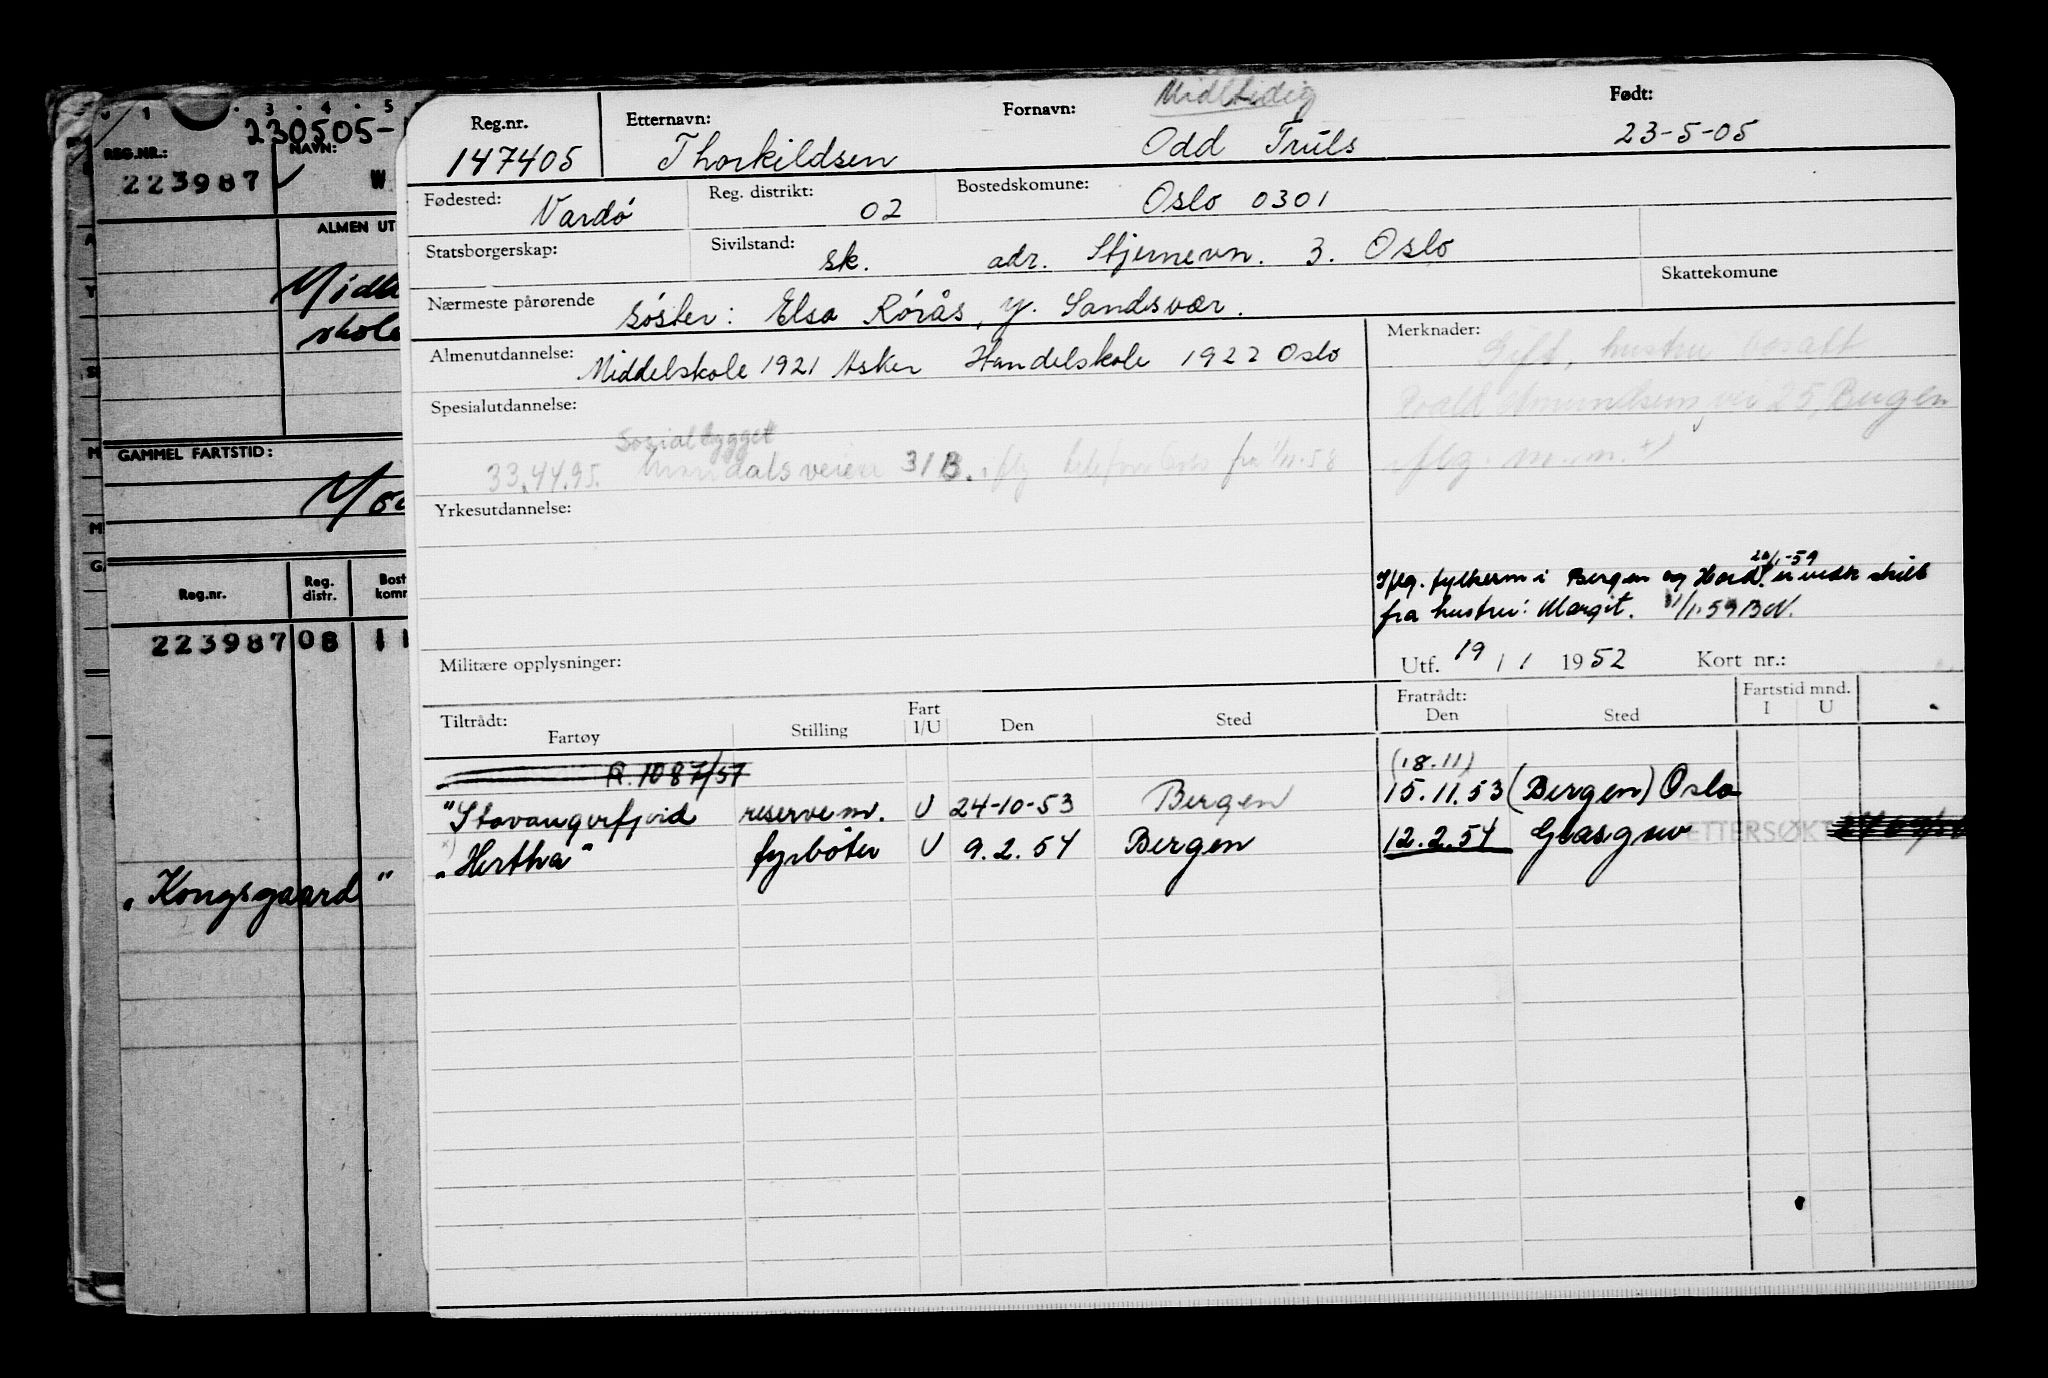 1 3 4 5
230505-
REG.NR.: NAVN:
223987 ✓ W
ALMEN UT
skole
GAMMEL FARTSTID:
Reg.nr. Reg. distr. Bost komm
223987 08 11
"Kongsgaard"
Midltidig
Reg.nr. Etternavn: Fornavn: Født:
147405 Thorkildsen Odd Truls 23-5-05
Fødested: Vardö Reg. distrikt: 02 Bostedskomune: Oslo 0301
Statsborgerskap: Sivilstand: sk. adr. Stjernevn. 3. Oslo
Skattekomune
Nærmeste pårørende søster: Elsa Rörås, y. Sandsvær.
Almenutdannelse: Middelskole 1921 Asker Handelskole 1922 Oslo
Merknader: Gift, hustru bosatt
Roald Amundsens vei 25, Bergen
iflg. m.m. x)
Spesialutdannelse:
Sosialbygget
33.44.95. 31B. iflg telefon Oslo fra 1/11-58
Yrkesutdannelse:
20/1-59
Iflg. fylkesm i Bergen og Hord. er vedk skilt
fra hustru: Margit. 1/1.59 BN.
Militære opplysninger:
Utf. 19 / 1 1952 Kort nr.:
Tiltrådt: Fratrådt: Fartstid mnd.
Fartøy Stilling Fart I/U Den Sted Den Sted I U
R.1087/57
(18.11)
"Stavangerfjord reservem. U 24-10-53 Bergen 15.11.53 (Bergen) Oslo
x)
"Hertha" fyrbøter U 9.2.54 Bergen 12.2.54 Glasgow ETTERSØKT